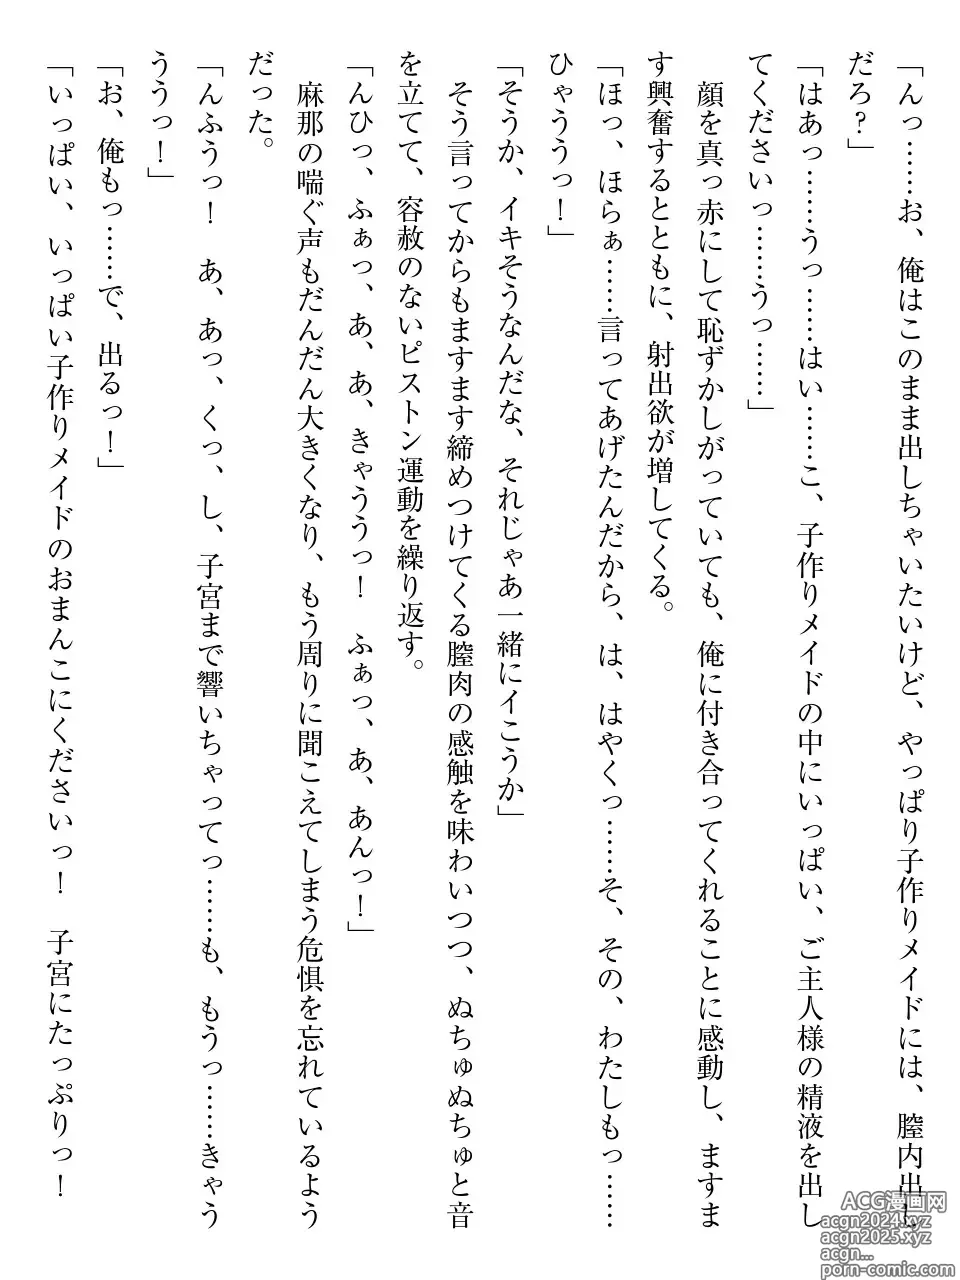 「んっ……お、俺はこのまま出しちゃいたいけど、やっぱり子作りメイドには、膣内出し
だろ？」
「はあっ……うっ……はい……こ、子作りメイドの中にいっぱい、ご主人様の精液を出し
てくださいっ……うっ……」
　顔を真っ赤にして恥ずかしがっていても、俺に付き合ってくれることに感動し、ますま
す興奮するとともに、射出欲が増してくる。
「ほっ、ほらぁ……言ってあげたんだから、は、はやくっ……そ、その、わたしもっ……
ひゃううっ！」
「そうか、イキそうなんだな、それじゃあ一緒にイこうか」
　そう言ってからもますます締めつけてくる膣肉の感触を味わいつつ、ぬちゅぬちゅと音
を立てて、容赦のないピストン運動を繰り返す。
「んひっ、ふぁっ、あ、あ、きゃううっ！　ふぁっ、あ、あんっ！」
　麻那の喘ぐ声もだんだん大きくなり、もう周りに聞こえてしまう危惧を忘れているよう
だった。
「んふうっ！　あ、あっ、くっ、し、子宮まで響いちゃってっ……も、もうっ……きゃう
ううっ！」
「お、俺もっ……で、出るっ！」
「いっぱい、いっぱい子作りメイドのおまんこにくださいっ！　子宮にたっぷりっ！
ACG漫画网
acgn2024.xyz
acgn2025.xyz
acgn...
porn-comic.com